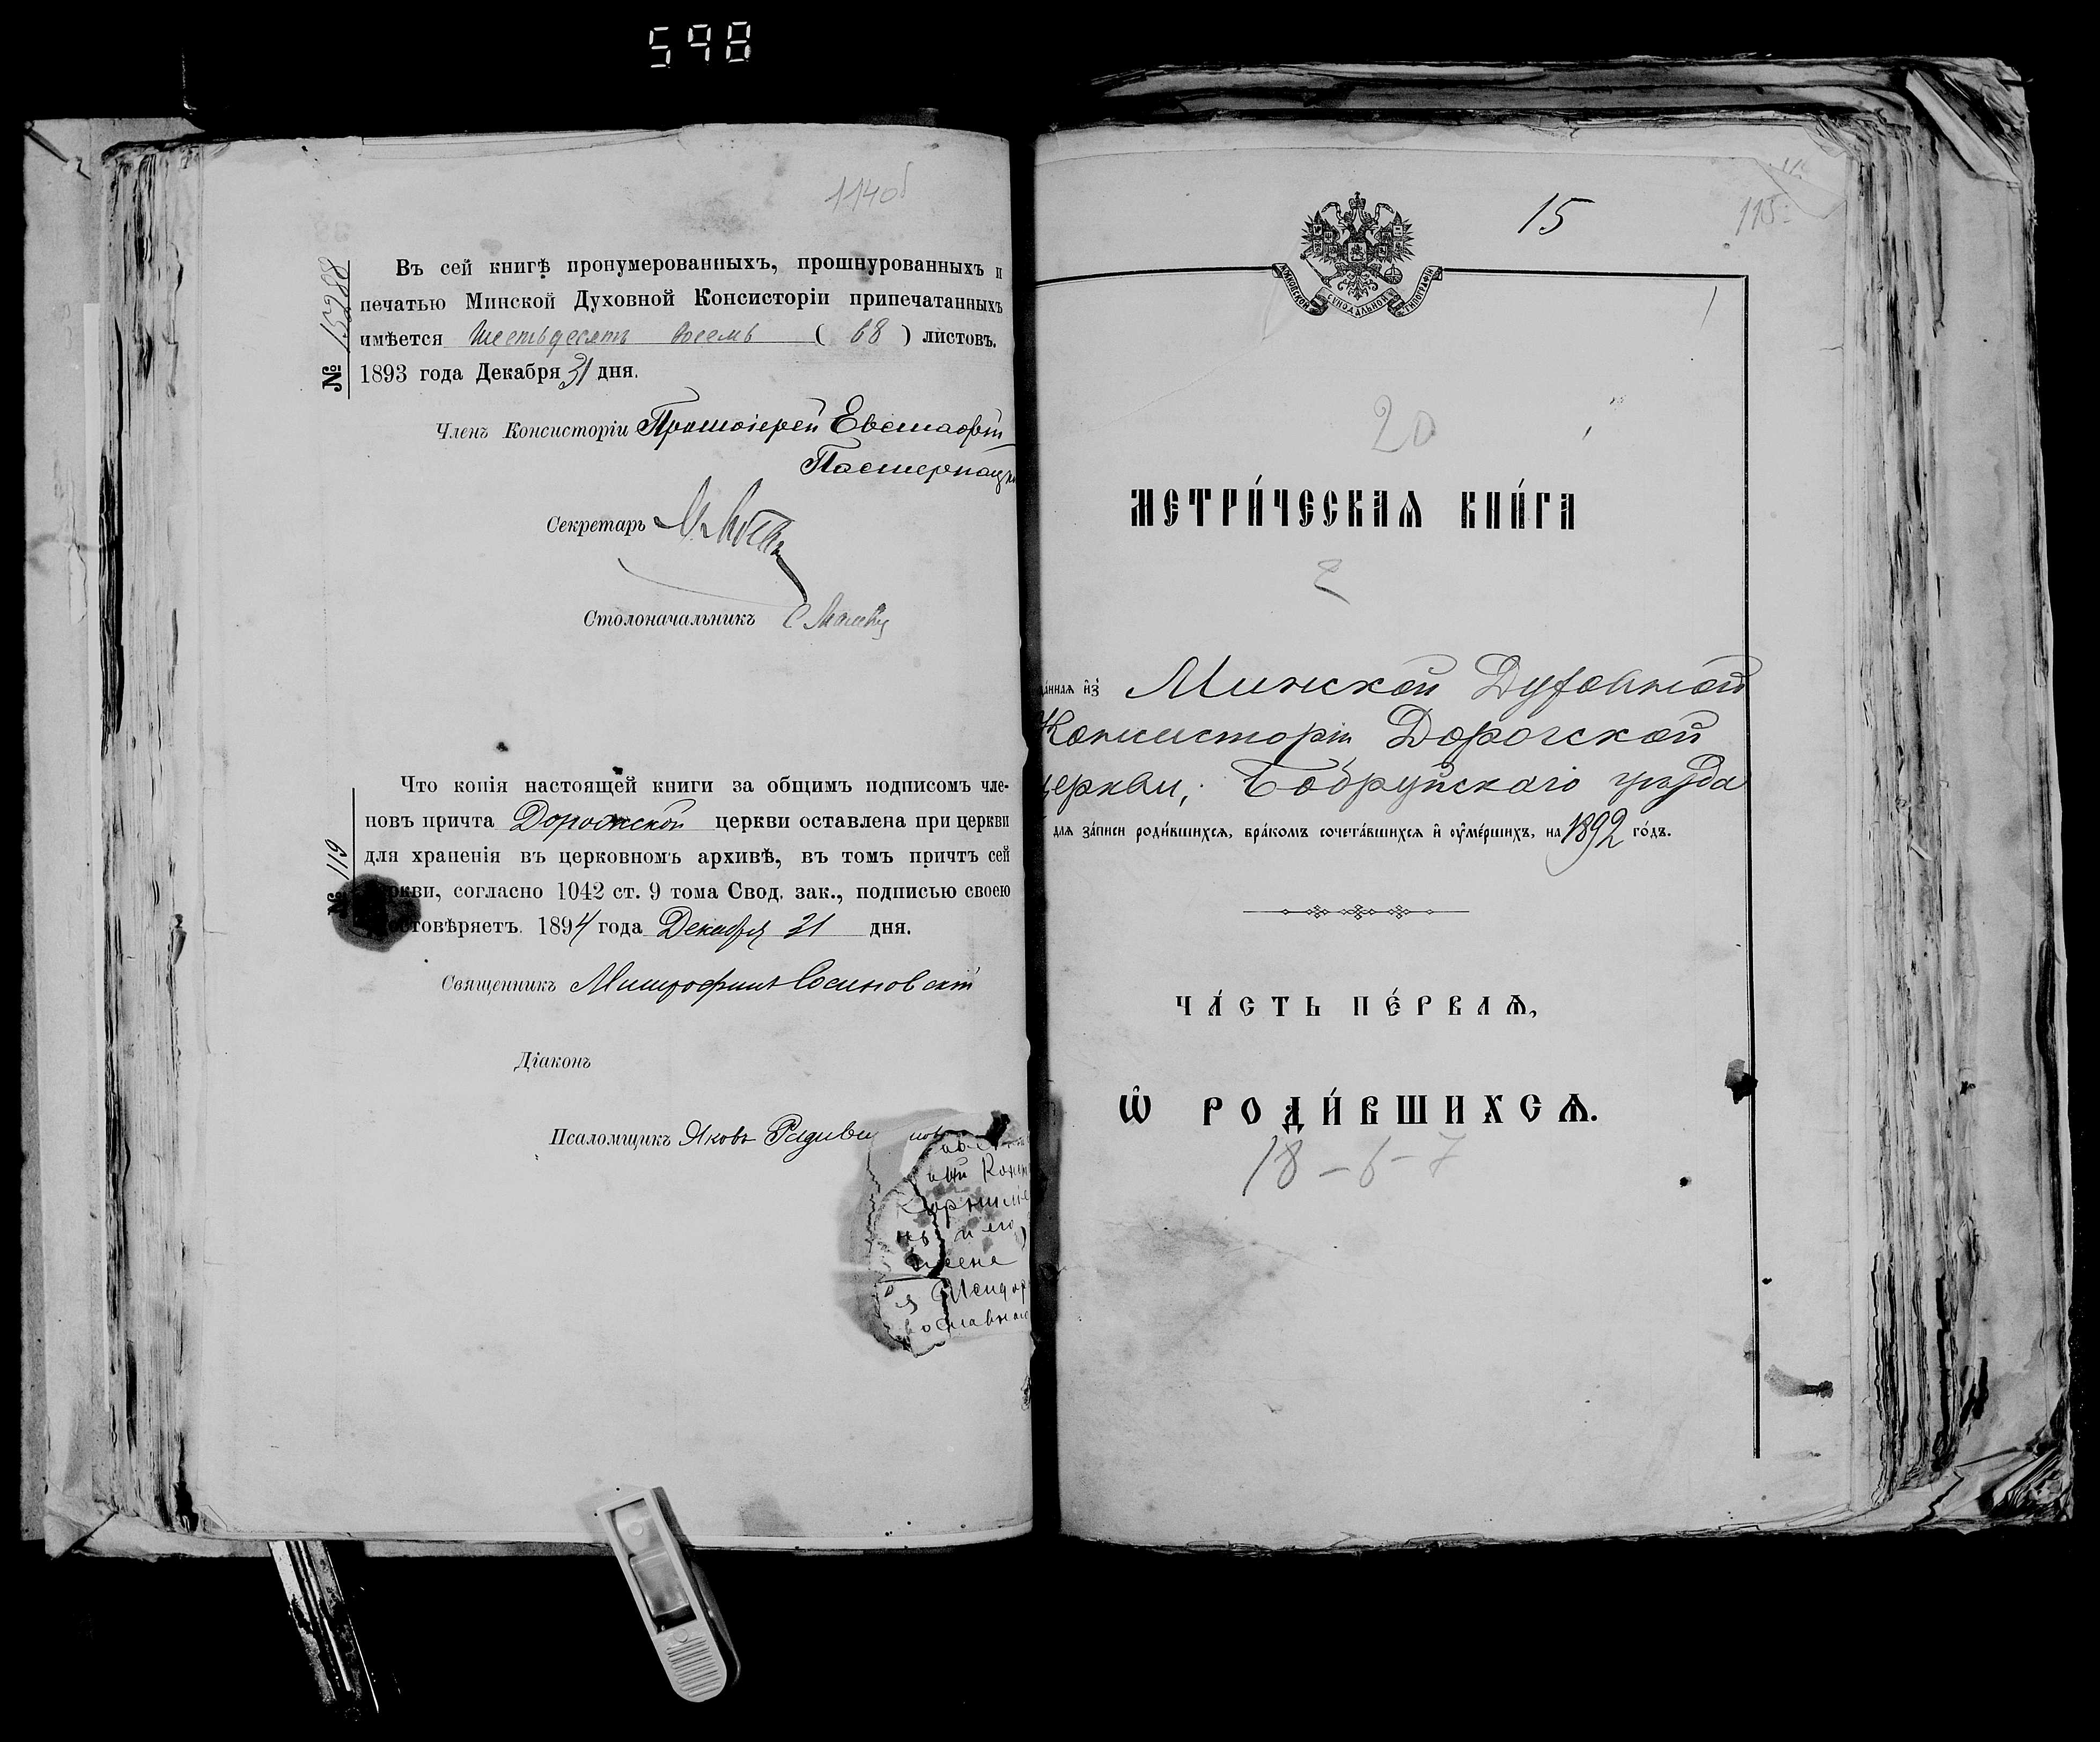 598
114об
Въ сей книгѣ пронумерованныхъ, прошнурованныхъ и
печатью Минской Духовной Консисторіи припечатанныхъ
имѣется шестьдесятъ восемь ( 68 ) листовъ.
№ 15288
1893 года Декабря 31 дня.
Членъ Консисторіи Протоіерей Евстафій
Секретарь
Столоначальникъ
Что копія настоящей книги за общимъ подписомъ чле-
новъ причта Дорожской церкви оставлена при церкви
для храненія въ церковномъ архивѣ, въ томъ причтъ сей
№ 119
ркви, согласно 1042 ст. 9 тома Свод. зак., подписью своею
остовѣряетъ. 1894 года Декабря 31 дня.
Священникъ Митрофанъ Сосиновскій
Діаконъ
Псаломщикъ Яковъ
и его
жена
15
115
МОСКОВСКОЙ СѴНОДАЛЬНОЙ ТИПОГРАФІИ
1
20
МЕТРИ́ЧЕСКАѦ КНИ́ГА
да́ннаѧ и҆з̾ Минской Духовной
Консисторіи Дорогской
церкви, Бобруйскаго уѣзда
для за́писи роди́вшихсѧ, бра́комъ сочета́вшихсѧ и҆ ᲂу҆ме́ршихъ, на 1892 го́дъ.
ЧА́СТЬ ПЕ́РВАѦ,
Ѽ РОДИ́ВШИХСѦ.
18 - 6 - 7